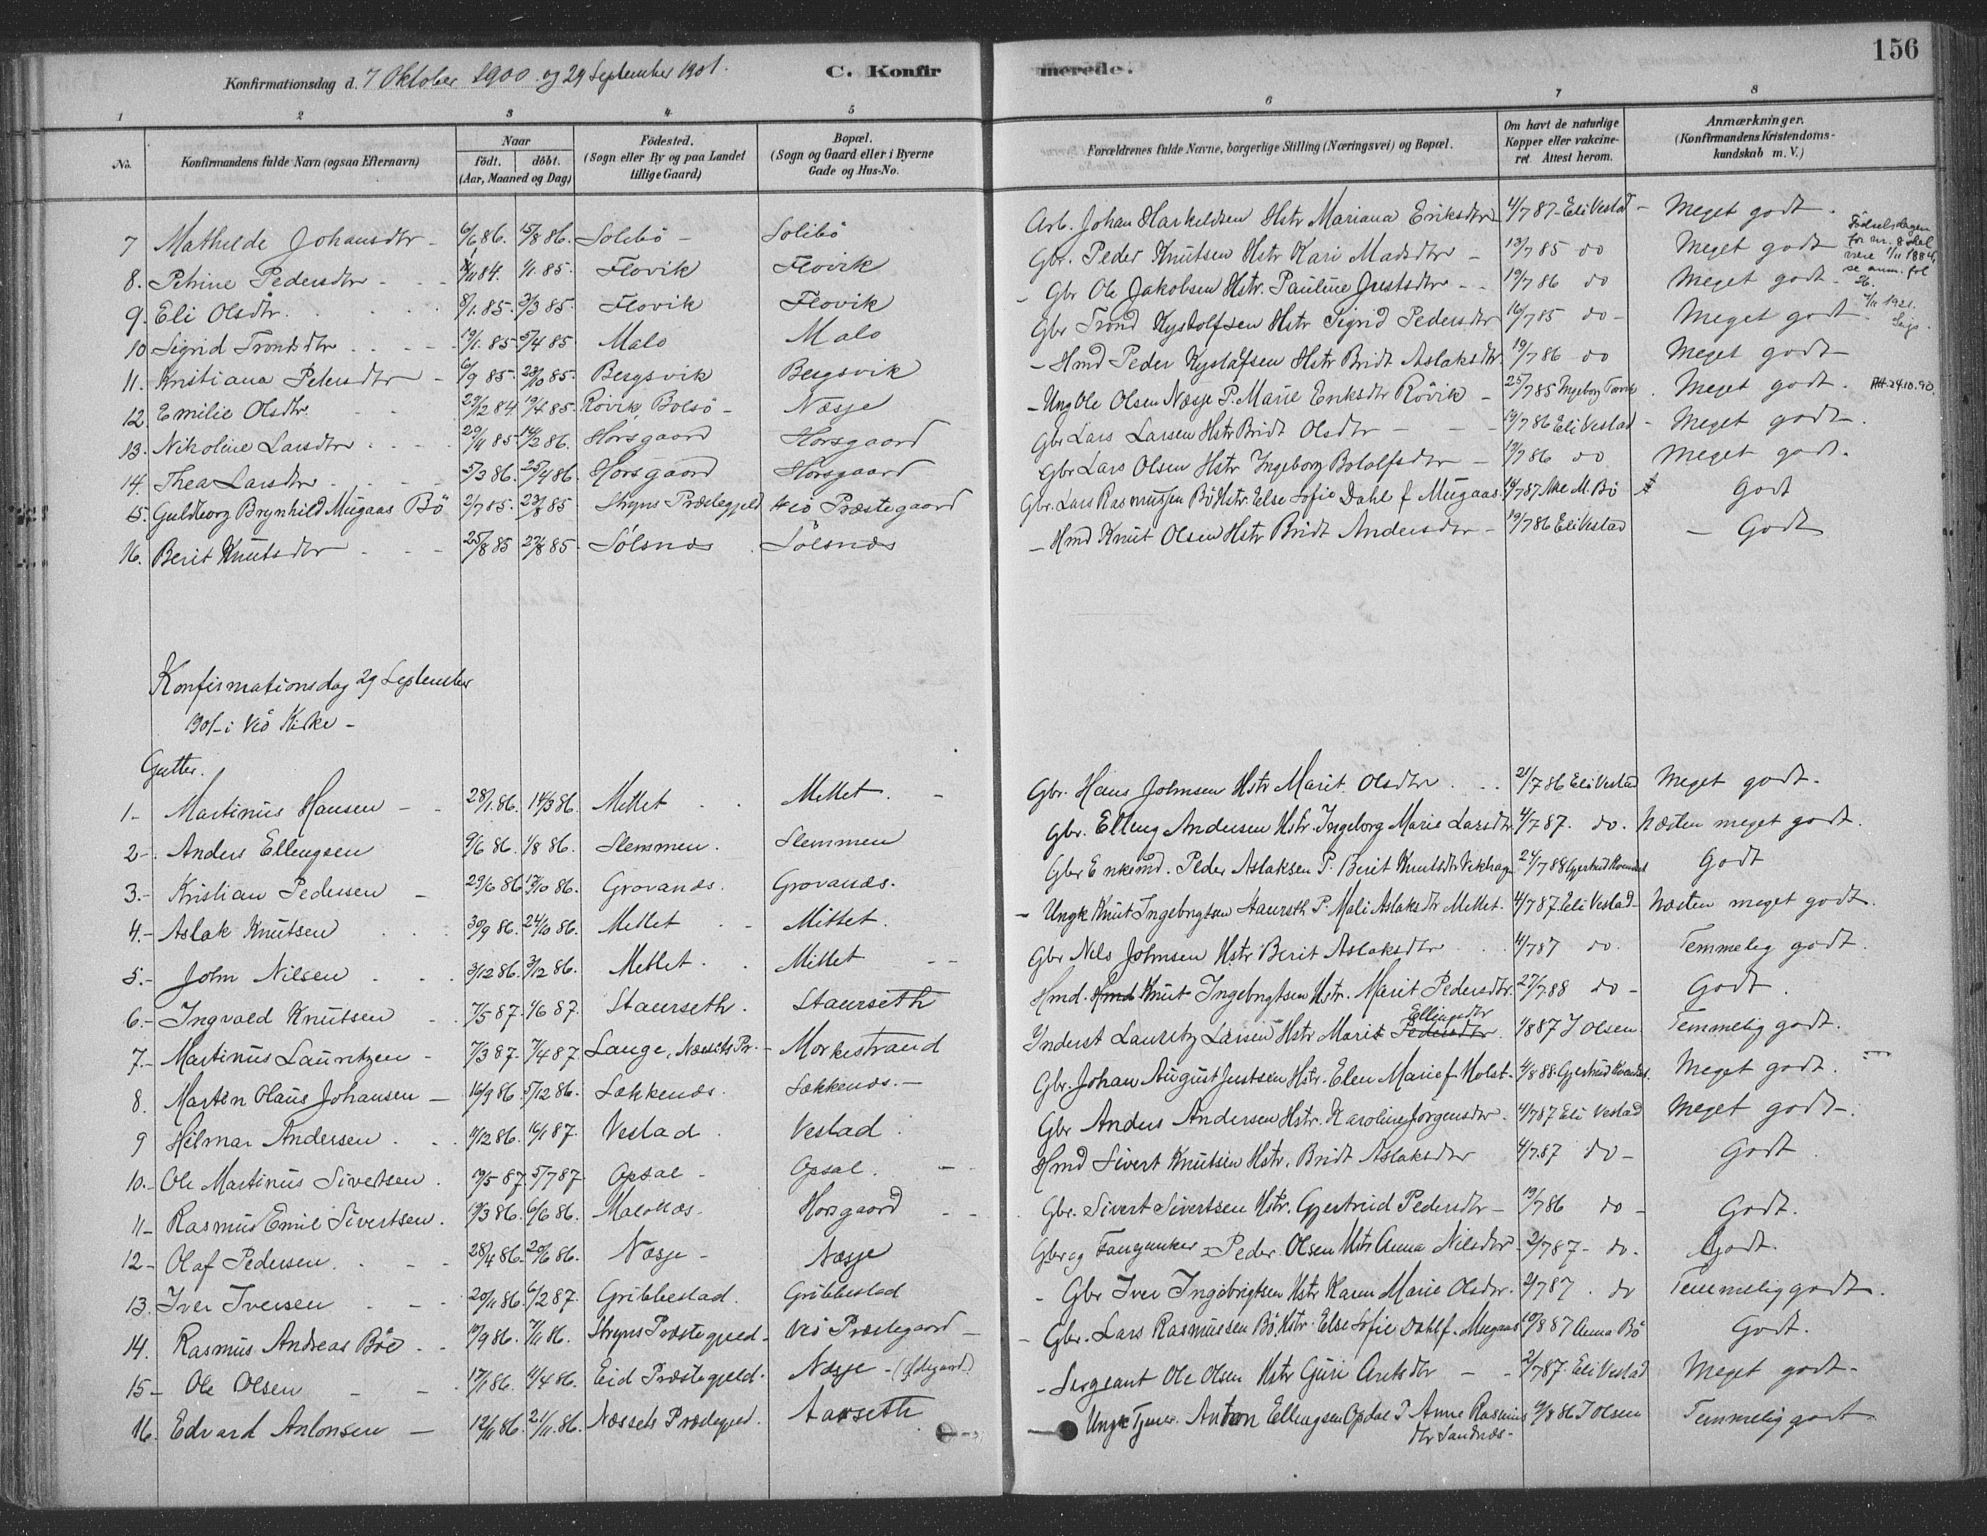 156
Konfirmationsdag d. 7 Oktober 1900 og 29 September 1901. C. Konfirmerede.
1 2 3 4 5 6 7 8
No. Konfirmandens fulde Navn (ogsaa Efternavn) Naar födt. döbt. (Aar, Maaned og Dag) Födested. (Sogn eller By og paa Landet tillige Gaard) Bopæl. (Sogn og Gaard eller i Byerne Gade og Hus-No. Forældrenes fulde Navne, borgerlige Stilling (Næringsvei) og Bopæl. Om havt de naturlige Kopper eller vakcineret Attest herom. Anmærkninger. (Konfirmandens Kristendomskundskab m. V.)
7 Mathilde Johansdtr - 6/6 86. 15/8 86. Solibö - Solibö Arb. Johan Harkeldsen Hstr Mariana Eriksdtr 4/7 87 - Eli Vestad - Meget godt.
8. Petrine Pedersdtr - 1/11 84. 1/1. 85. Flovik Flovik Gbr. Peder Knutsen Hstr Kari Madsdtr - 13/7 85 do Meget godt
Födselsdagen for nr. 8 skal være 1/11 1884, se anm. fol 26.
9. Eli Olsdtr. 8/1. 85. 3/3 85. Flovik Flovik - Gbr Ole Jakobsen Hstr. Pauline Justsdtr - - 19/7 86 do Meget godt.
10. Sigrid Trondsdtr 19/1. 85. 5/4 85. Malo Malo Gbr Trond Kystolfsen Hstr Sigrid Pedersdtr 16/7 85 do - Meget godt.
11. Kristiana Petersdtr - 6/9 85. 23/10 85. Bergsvik Bergsvik - Hmd Peder Kystolfsen Hstr Bridt Aslaksdtr. 19/7 86 do Meget godt
12. Emilie Olsdtr. 23/12 84. 19/4 85. Rövik, Bolsö - Næsje - Ung Ole Olsen Næsje P. Marie Eriksdtr Rövik - 25/7 85 Ingeborg Meget godt. Att. 24.10.90
13. Nikoline Larsdtr 20/11 85. 14/2 86. Horsgaard Horsgaard Gbr Lars Larsen Hstr Bridt Olsdtr - 19/7 86 Eli Vestad - Meget godt.
14. Thea Larsdtr. 5/3 86. 25/4 86. Horsgaard Horsgaard Gbr Lars Olsen Hstr Ingeborg Botolfsdtr - 19/7 86 do Meget godt.
15. Guldborg Brynhild Mugaas Bö 2/7 85. 23/8 85. Stryns Præstegjeld Veö Præstegaard Gbr. Lars Rasmussen Bö Hstr. Else Sofie Dahl f Mugaas. 14/7 87 M. Bö Godt
16. Berit Knutsdtr 25/8 85 27/8 85. Sölsnæs Sölsnæs - Hmd Knut Olsen Hstr Bridt Andersdtr - 19/7 86 Eli Vestad - Godt
Konfirmationsdag 29 September
1901 - i Veö Kirke -
Gutter.
1 - Martinus Hansen - - 28/1. 86. 14/3 86. Mittet Mittet. - Gbr. Hans Johnsen Hstr Marit Olsdtr 2/7 86 Eli Vestad Meget godt.
2 - Anders Ellingsen 9/6 86. 1/8 86. Slemmen. Slemmen Gbr. Elling Andersen Hstr. Ingeborg Marie Larsdtr 4/7 87. do. Næsten meget godt.
3. - Kristian Pedersen - 29/6 86. 17/10 86. Grovanæs. Grovanæs. Gbr Enkemd. Peder Aslaksen P. Berit Knutsdtr Vikhagen 24/7 88 Gjertrud Godt
4. - Aslak Knutsen 30/9 86. 24/10 86. Mittet - Mittet. - Ungk Knut Ingebrigtsen Staurseth P. Mali Aslaksdtr Mittet. 4/7 87 Eli Vestad - Næsten meget godt.
5. - John Nilsen 3/12 86. 3/12 86. Mittet. Mittet - - Gbr Nils Johnsen Hstr Berit Aslaksdtr 4/7 87 do. Temmelig godt.
6. - Ingvald Knutsen 7/5 87. 4/6 87. Staurseth. Staurseth Hmd. Hmd Knut Ingebrigtsen Hstr. Marit Pedersdtr. 27/7 88 do - Godt.
7. - Martinus Lauritzen - 7/3 87. 7/4 87. Lange, Næssets Pr. - Morkestrand Inderst Lauritz Larsen Hstr Marit Pedersdtr Ellingsdtr 1/8 87 J Olsen Temmelig godt.
8. Marten Olaus Johansen - 16/9 86. 5/12 86. Sækkenæs. Sækkenæs. - Gbr. Johan August Justsen Hstr. Elen Marie f Holst. 4/8 88. Gjertrud Meget godt.
9 Hilmar Andersen. 9/12 86. 16/1 87. Vestad. Vestad. Gbr Anders Andersen Hstr. Karoline Jörgensdtr. 4/7 87 Eli Vestad Meget godt.
10. - Ole Martinus Sivertsen. 19/5 87. 5/7 87. Opsal - Opsal. - Hmd Sivert Knutsen Hstr. Bridt Aslaksdtr 4/7 87 do - Godt.
11 - Rasmus Emil Sivertsen. 19/3 86. 6/6 86. Malonæs. Horsgaard - - Gbr. Sivert Sivertsen Hstr. Gjertrud Pedersdtr - 19/7 86 do - Godt.
12 - Olaf Pedersen. 28/4 86. 20/6 86. Næsje - Næsje Gbr og Peder Olsen Hstr Anna Nilsdtr - 2/7 87 - do. Godt.
13. Iver Iversen 20/11 86. 6/2 87. Gribbestad. Gribbestad - Gbr Iver Ingebrigtsen Hstr Karen Marie Olsdtr. 2/7 87. do Temmelig godt.
14. Rasmus Andreas Böe 19/9 86. 7/11 86. Stryns Præstegjeld - Veö Præstegaard - - Gbr. Lars Rasmussen Bö Hstr. Else Sofie Dahl f. Mugaas 10/8 87 Anna Bö Godt.
15 - Ole Olsen 17/1 86. 4/4 86. Eid Præstegjeld. Næsje - - Sergeant Ole Olsen Hstr Guri Aretsdtr - - 2/7 87. Eli Vestad Meget godt -
16. Edvard Antonsen - 12/11 86. 21/11. 86. Næssets Præstegjeld. Aarseth - Ungk Tjener. Anton Ellingsen Opdal P Anne Rasmusdtr Sandnæs - 9/8 86 J Olsen Temmelig godt